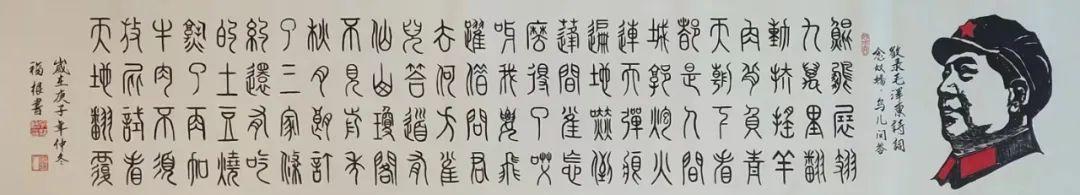 敬录毛澤東詩詞
念奴嬌·鸟儿问答
鯤鵬展翅
九萬里翻
動扶搖羊
角背負青
天朝下看
都是人間
城郭炮火
連天彈痕
遍地嚇倒
蓬間雀怎
麼得了哎
呀我要飛
躍借問君
去何方雀
兒答道有
仙山瓊閣
不見前年
秋月朗訂
了三家條
約還有吃
的土豆燒
熟了再加
牛肉不須
放屁試看
天地翻覆
歲在庚子年仲冬
福書